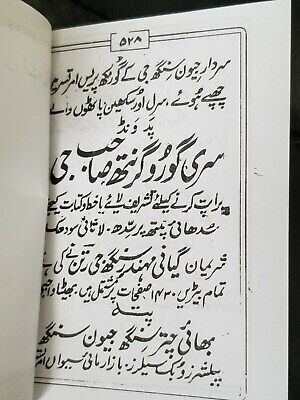 ۵۲۸
سردار جیون سنگھ جی کے گورمکھ پریس امرتسر
چھپے ہوئے، سرل اور سکھین پاٹھوں والے
پد ونڈ
سری گورو گرنتھ صاحب جی
پراپت کرنے کیلئے تشریف لائیے یا خط و کتابت کیجئے
پنتھ پرسدھ۔ لاثانی سودھک
شریمان گیانی مہندر سنگھ جی رتن نے کی ہے
تمام بیڑیں ۱۴۳۰ صفحات پر مشتمل ہیں۔ بھیٹا
پتہ
بھائی چتر سنگھ جیون سنگھ
پبلشرز و بک سیلرز۔ بازار مائی سیواں امرتسر